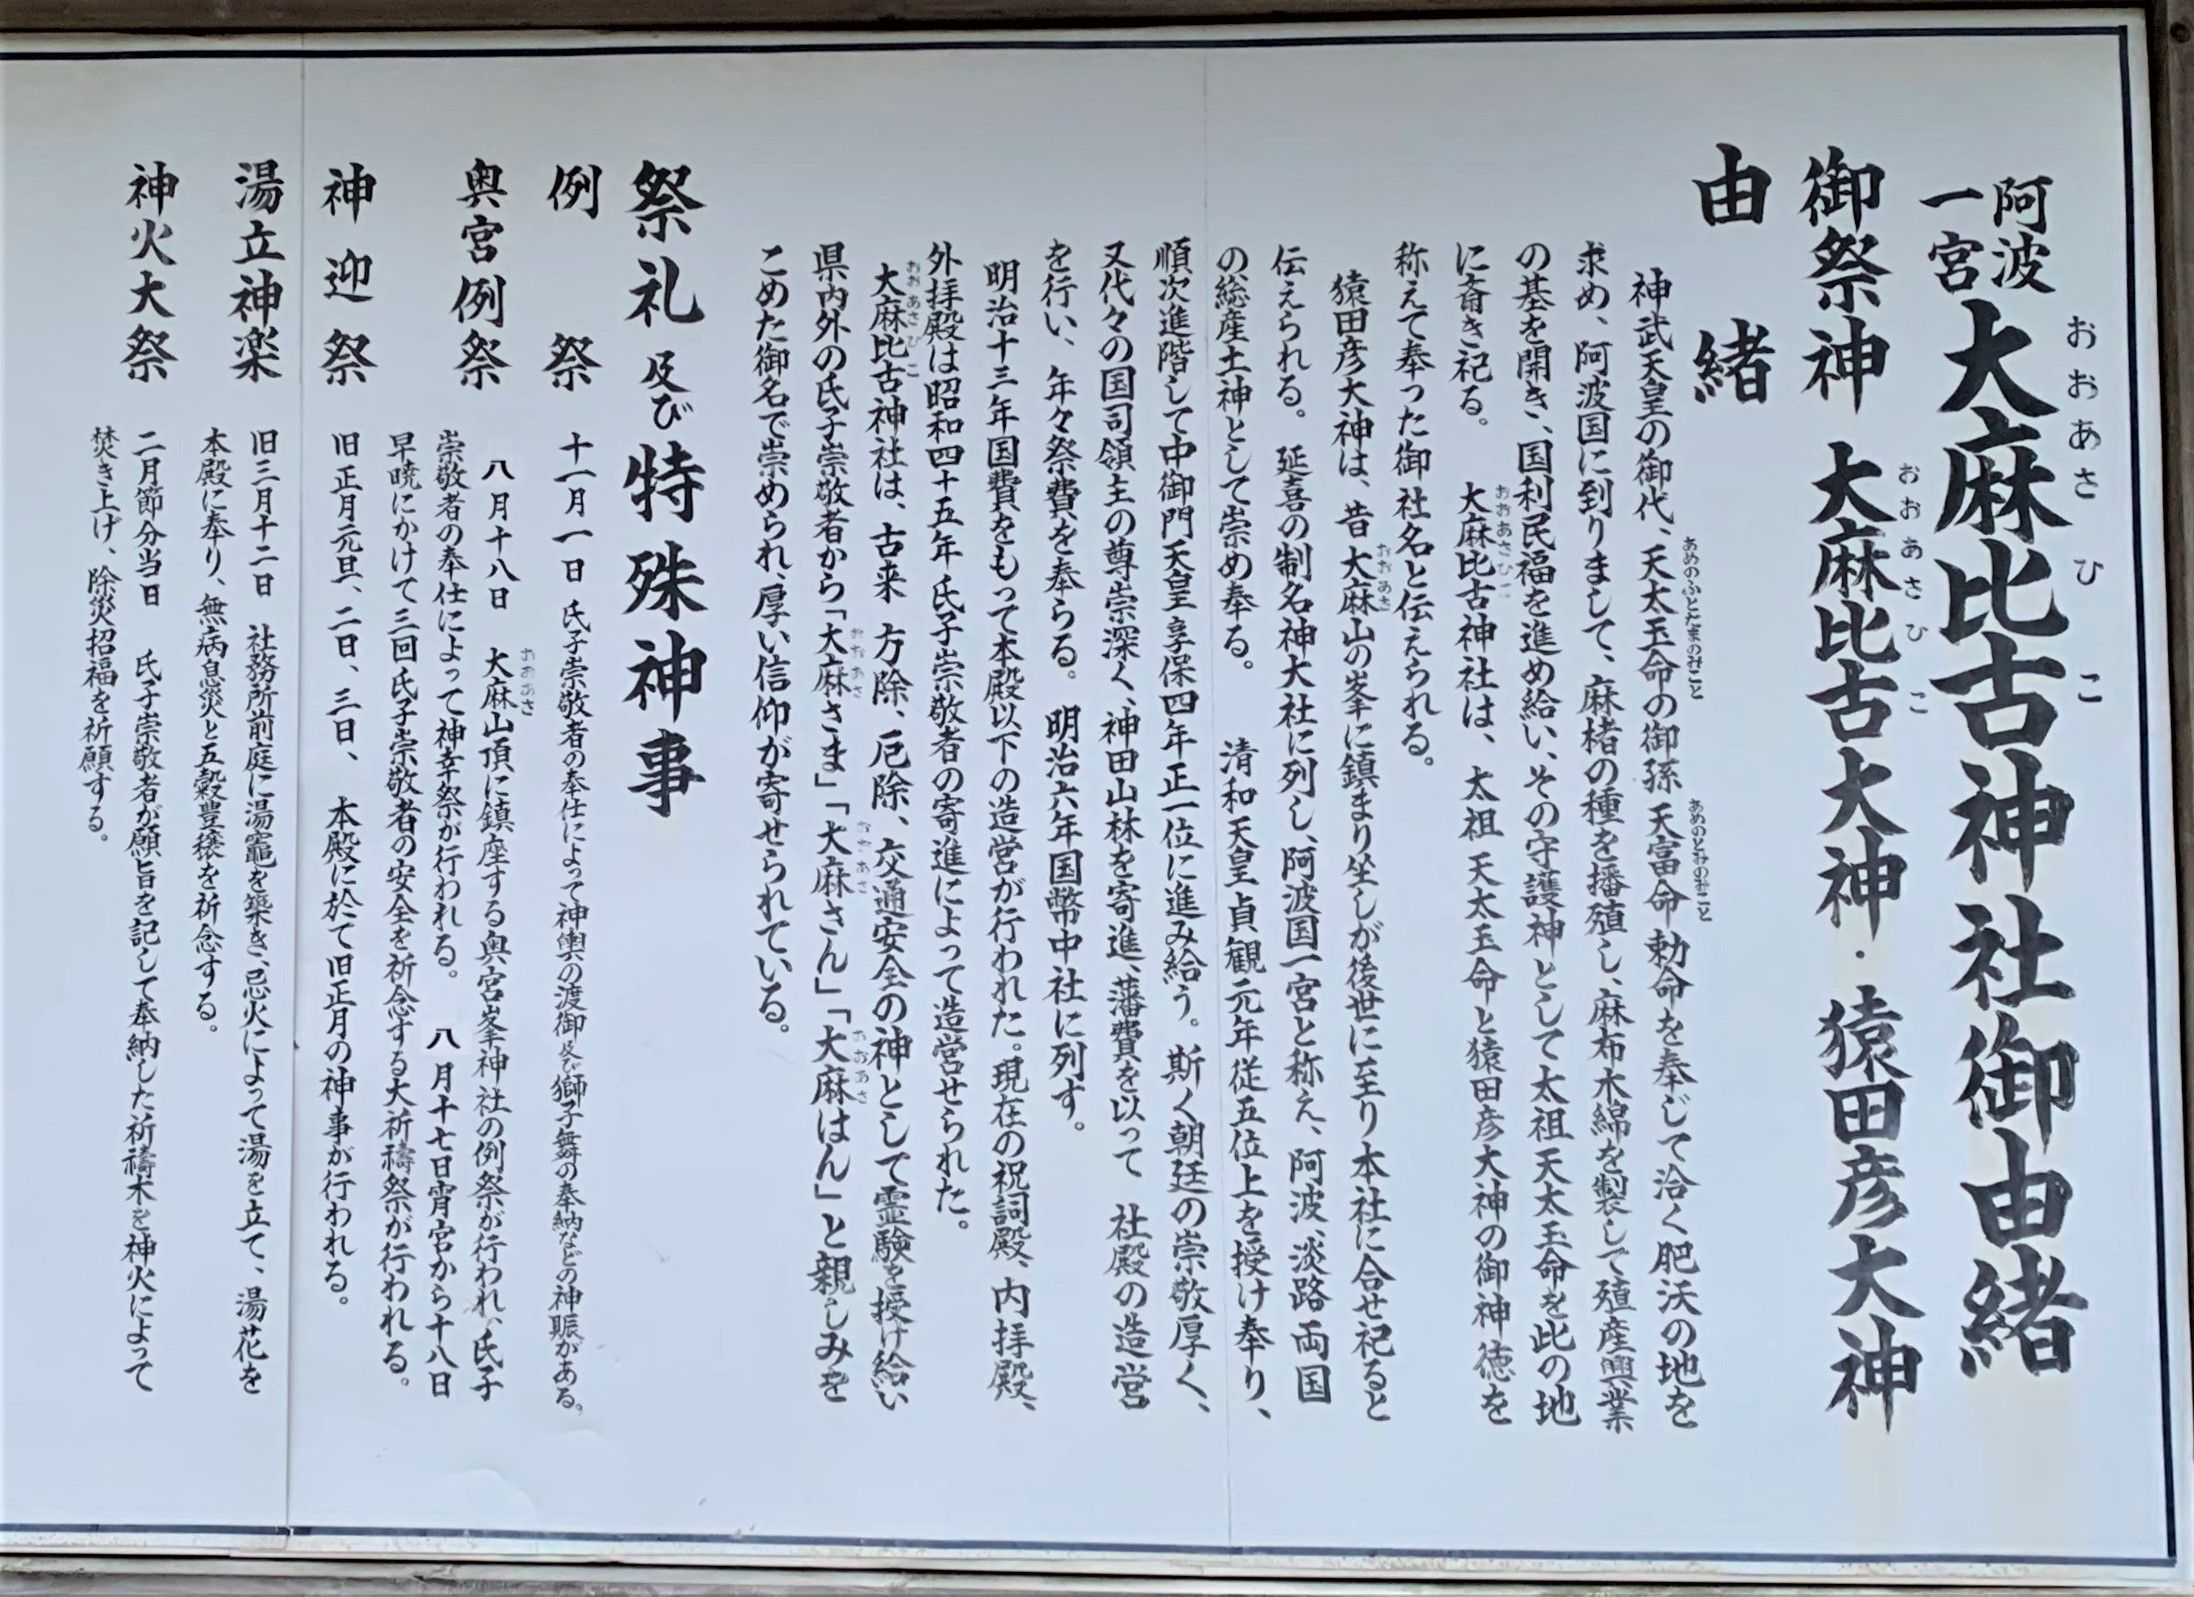 阿波一宮 大麻比古神社御由緒
おおあさひこ
御祭神 大麻比古大神・猿田彦大神
おおあさひこ
由緒
神武天皇の御代、天太玉命の御孫 天富命勅命を奉じて洽く肥沃の地を
あめのふとたまのみこと あめのとみのみこと
求め、阿波国に到りまして、麻楮の種を播殖し、麻布木綿を製して殖産興業
の基を開き、国利民福を進め給い、その守護神として太祖天太玉命を此の地
に斎き祀る。 大麻比古神社は、太祖 天太玉命と猿田彦大神の御神徳を
おおあさひこ
称えて奉った御社名と伝えられる。
猿田彦大神は、昔大麻山の峯に鎮まり坐しが後世に至り本社に合せ祀ると
おおあさ
伝えられる。 延喜の制名神大社に列し、阿波国一宮と称え、阿波、淡路両国
の総産土神として崇め奉る。 清和天皇貞観元年従五位上を授け奉り、
順次進階して中御門天皇享保四年正一位に進み給う。斯く朝廷の崇敬厚く、
又代々の国司領主の尊崇深く、神田山林を寄進、藩費を以って 社殿の造営
を行い、年々祭費を奉らる。 明治六年国幣中社に列す。
明治十三年国費をもって本殿以下の造営が行われた。現在の祝詞殿、内拝殿、
外拝殿は昭和四十五年氏子崇敬者の寄進によって造営せられた。
大麻比古神社は、古来 方除、厄除、交通安全の神として霊験を授け給い
おおあさひこ
県内外の氏子崇敬者から「大麻さま」「大麻さん」「大麻はん」と親しみを
おおあさ おおあさ おおあさ
こめた御名で崇められ、厚い信仰が寄せられている。
祭礼及び特殊神事
例祭 十一月一日 氏子崇敬者の奉仕によって神輿の渡御及び獅子舞の奉納などの神賑がある。
奥宮例祭 八月十八日 大麻山頂に鎮座する奥宮峯神社の例祭が行われ、氏子
おおあさ
崇敬者の奉仕によって神幸祭が行われる。 八月十七日宵宮から十八日
早暁にかけて三回氏子崇敬者の安全を祈念する大祈祷祭が行われる。
神迎祭 旧正月元旦、二日、三日、 本殿に於て旧正月の神事が行われる。
湯立神楽 旧三月十二日 社務所前庭に湯竈を築き、忌火によって湯を立て、湯花を
本殿に奉り、無病息災と五穀豊穣を祈念する。
神火大祭 二月節分当日 氏子崇敬者が願旨を記して奉納した祈祷木を神火によって
焚き上げ、除災招福を祈願する。